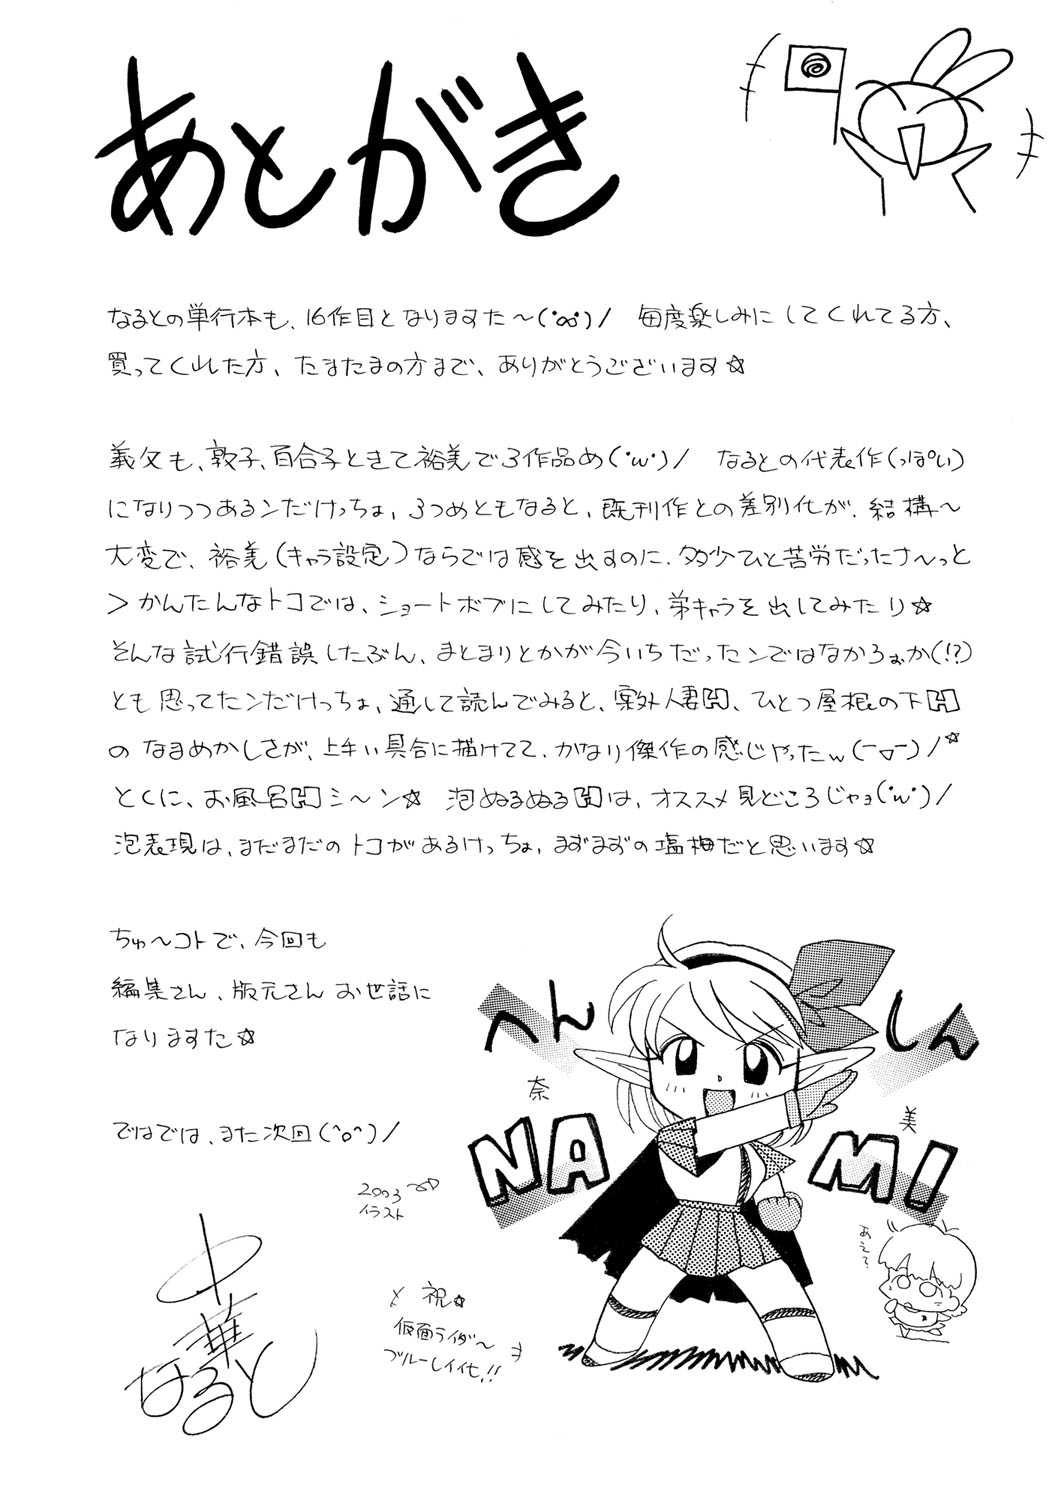 あとがき
なるとの単行本も、16作目となりますた～(･ω･)/ 毎度楽しみにしてくれてる方、
買ってくれた方、たまたまの方まで、ありがとうございます☆
義父も、敦子、百合子ときて裕美で3作品め(･ω･)/ なるとの代表作(っぽい)
になりつつあるンだけっちょ、3つめともなると、既刊作との差別化が、結構～
大変で、裕美(キャラ設定)ならでは感を出すのに、多少ひと苦労だったナ～っと
＞かんたんなトコでは、ショートボブにしてみたり、弟キャラを出してみたり☆
そんな試行錯誤したぶん、まとまりとかが今いちだったンではなかろぉか(!?)
とも思ってたンだけっちょ、通して読んでみると、案外人妻H、ひとつ屋根の下H
のなまめかしさが、上手い具合に描けてて、かなり傑作の感じやったw(￣▽￣)/☆
とくに、お風呂Hシ～ン☆ 泡ぬるぬるHは、オススメ見どころじゃョ(･ω･)/
泡表現は、まだまだのトコがあるけっちょ、まずまずの塩梅だと思います☆
ちゅ～コトで、今回も
編集さん、版元さんお世話に
なりますた☆
ではでは、また次回(^o^)/
へんしん
奈美
NAMI
あえて?
2003
イラスト
祝☆
仮面ライダ～
ブルーレイ化!!
中華
なると